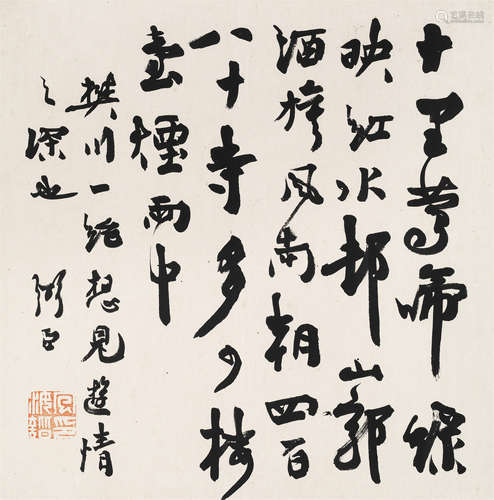 十里莺啼绿
映红水邨山郭
酒旗风南朝四百
八十寺多少楼
台烟雨中
樊川一绝想见游情
之深也